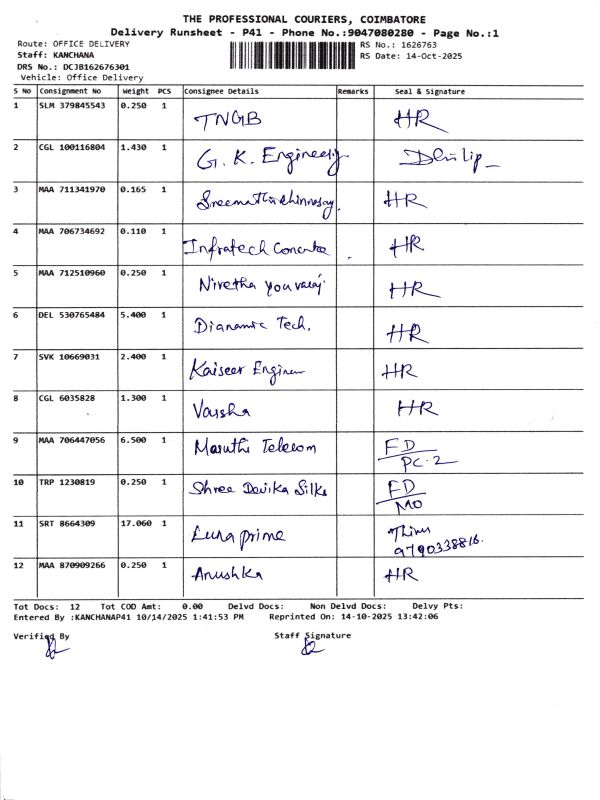 THE PROFESSIONAL COURIERS, COIMBATORE
Delivery Runsheet - P41 - Phone No.:9047080280 - Page No.:1
Route: OFFICE DELIVERY
RS No.: 1626763
Staff: KANCHANA
RS Date: 14-Oct-2025
DRS No.: DCJB162676301
Vehicle: Office Delivery
S No Consignment No Weight PCS Consignee Details Remarks Seal & Signature
1 SLM 379845543 0.250 1 TNGB HR
2 CGL 100116804 1.430 1 G. K. Dhilip
3 MAA 711341970 0.165 1 HR
4 MAA 706734692 0.110 1 Infratech HR
5 MAA 712510960 0.250 1 Nivetha HR
6 DEL 530765484 5.400 1 Dianamic Tech. HR
7 SVK 10669031 2.400 1 Kaiseer HR
8 CGL 6035828 1.300 1 Varsha HR
9 MAA 706447056 6.500 1 Maruthi Telecom FD
PC-2
10 TRP 1230819 0.250 1 Shree Devika Silks FD
MO
11 SRT 8664309 17.060 1 Luna prime
9790338816.
12 MAA 870909266 0.250 1 Anushka HR
Tot Docs: 12 Tot COD Amt: 0.00 Delvd Docs: Non Delvd Docs: Delvy Pts:
Entered By :KANCHANAP41 10/14/2025 1:41:53 PM Reprinted On: 14-10-2025 13:42:06
Verified By Staff Signature